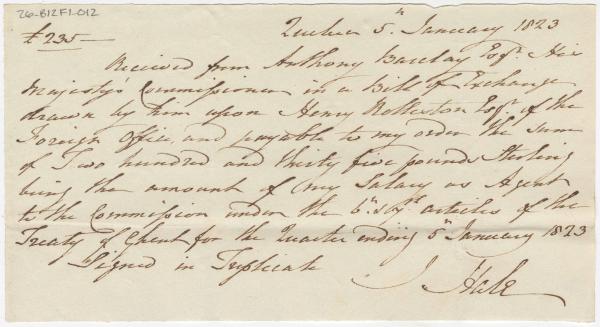 26-B12F1-012
Quebec 5th January 1823
£235—
Received from Anthony Barclay Esqr. His
Majesty's Commissioner in a Bill of Exchange
drawn by him upon Henry Rolleston Esqr. of the
Foreign Office, and payable to my order the sum
of Two hundred and thirty five pounds Sterling
being the amount of my Salary as Agent
to the Commission under the 6th & 7th articles of the
Treaty of Ghent for the Quarter ending 5th January 1823
Signed in Triplicate
J Hale